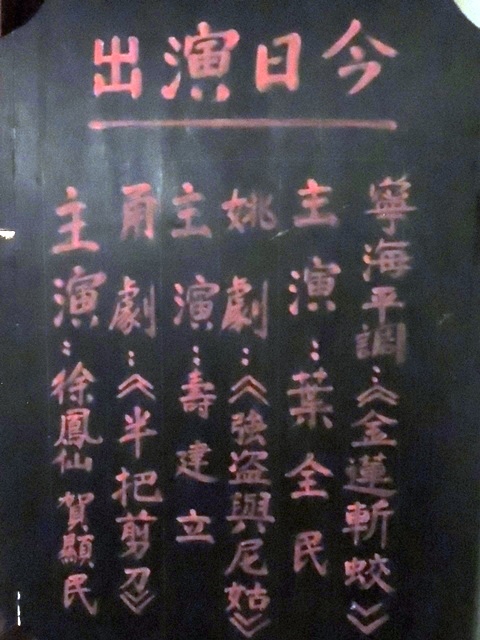 今日演出
寧海平調：《金蓮斬蛟》
主演：葉全民
姚劇：《強盗與尼姑》
主演：壽建立
甬劇：《半把剪刀》
主演：徐鳳仙 賀顯民